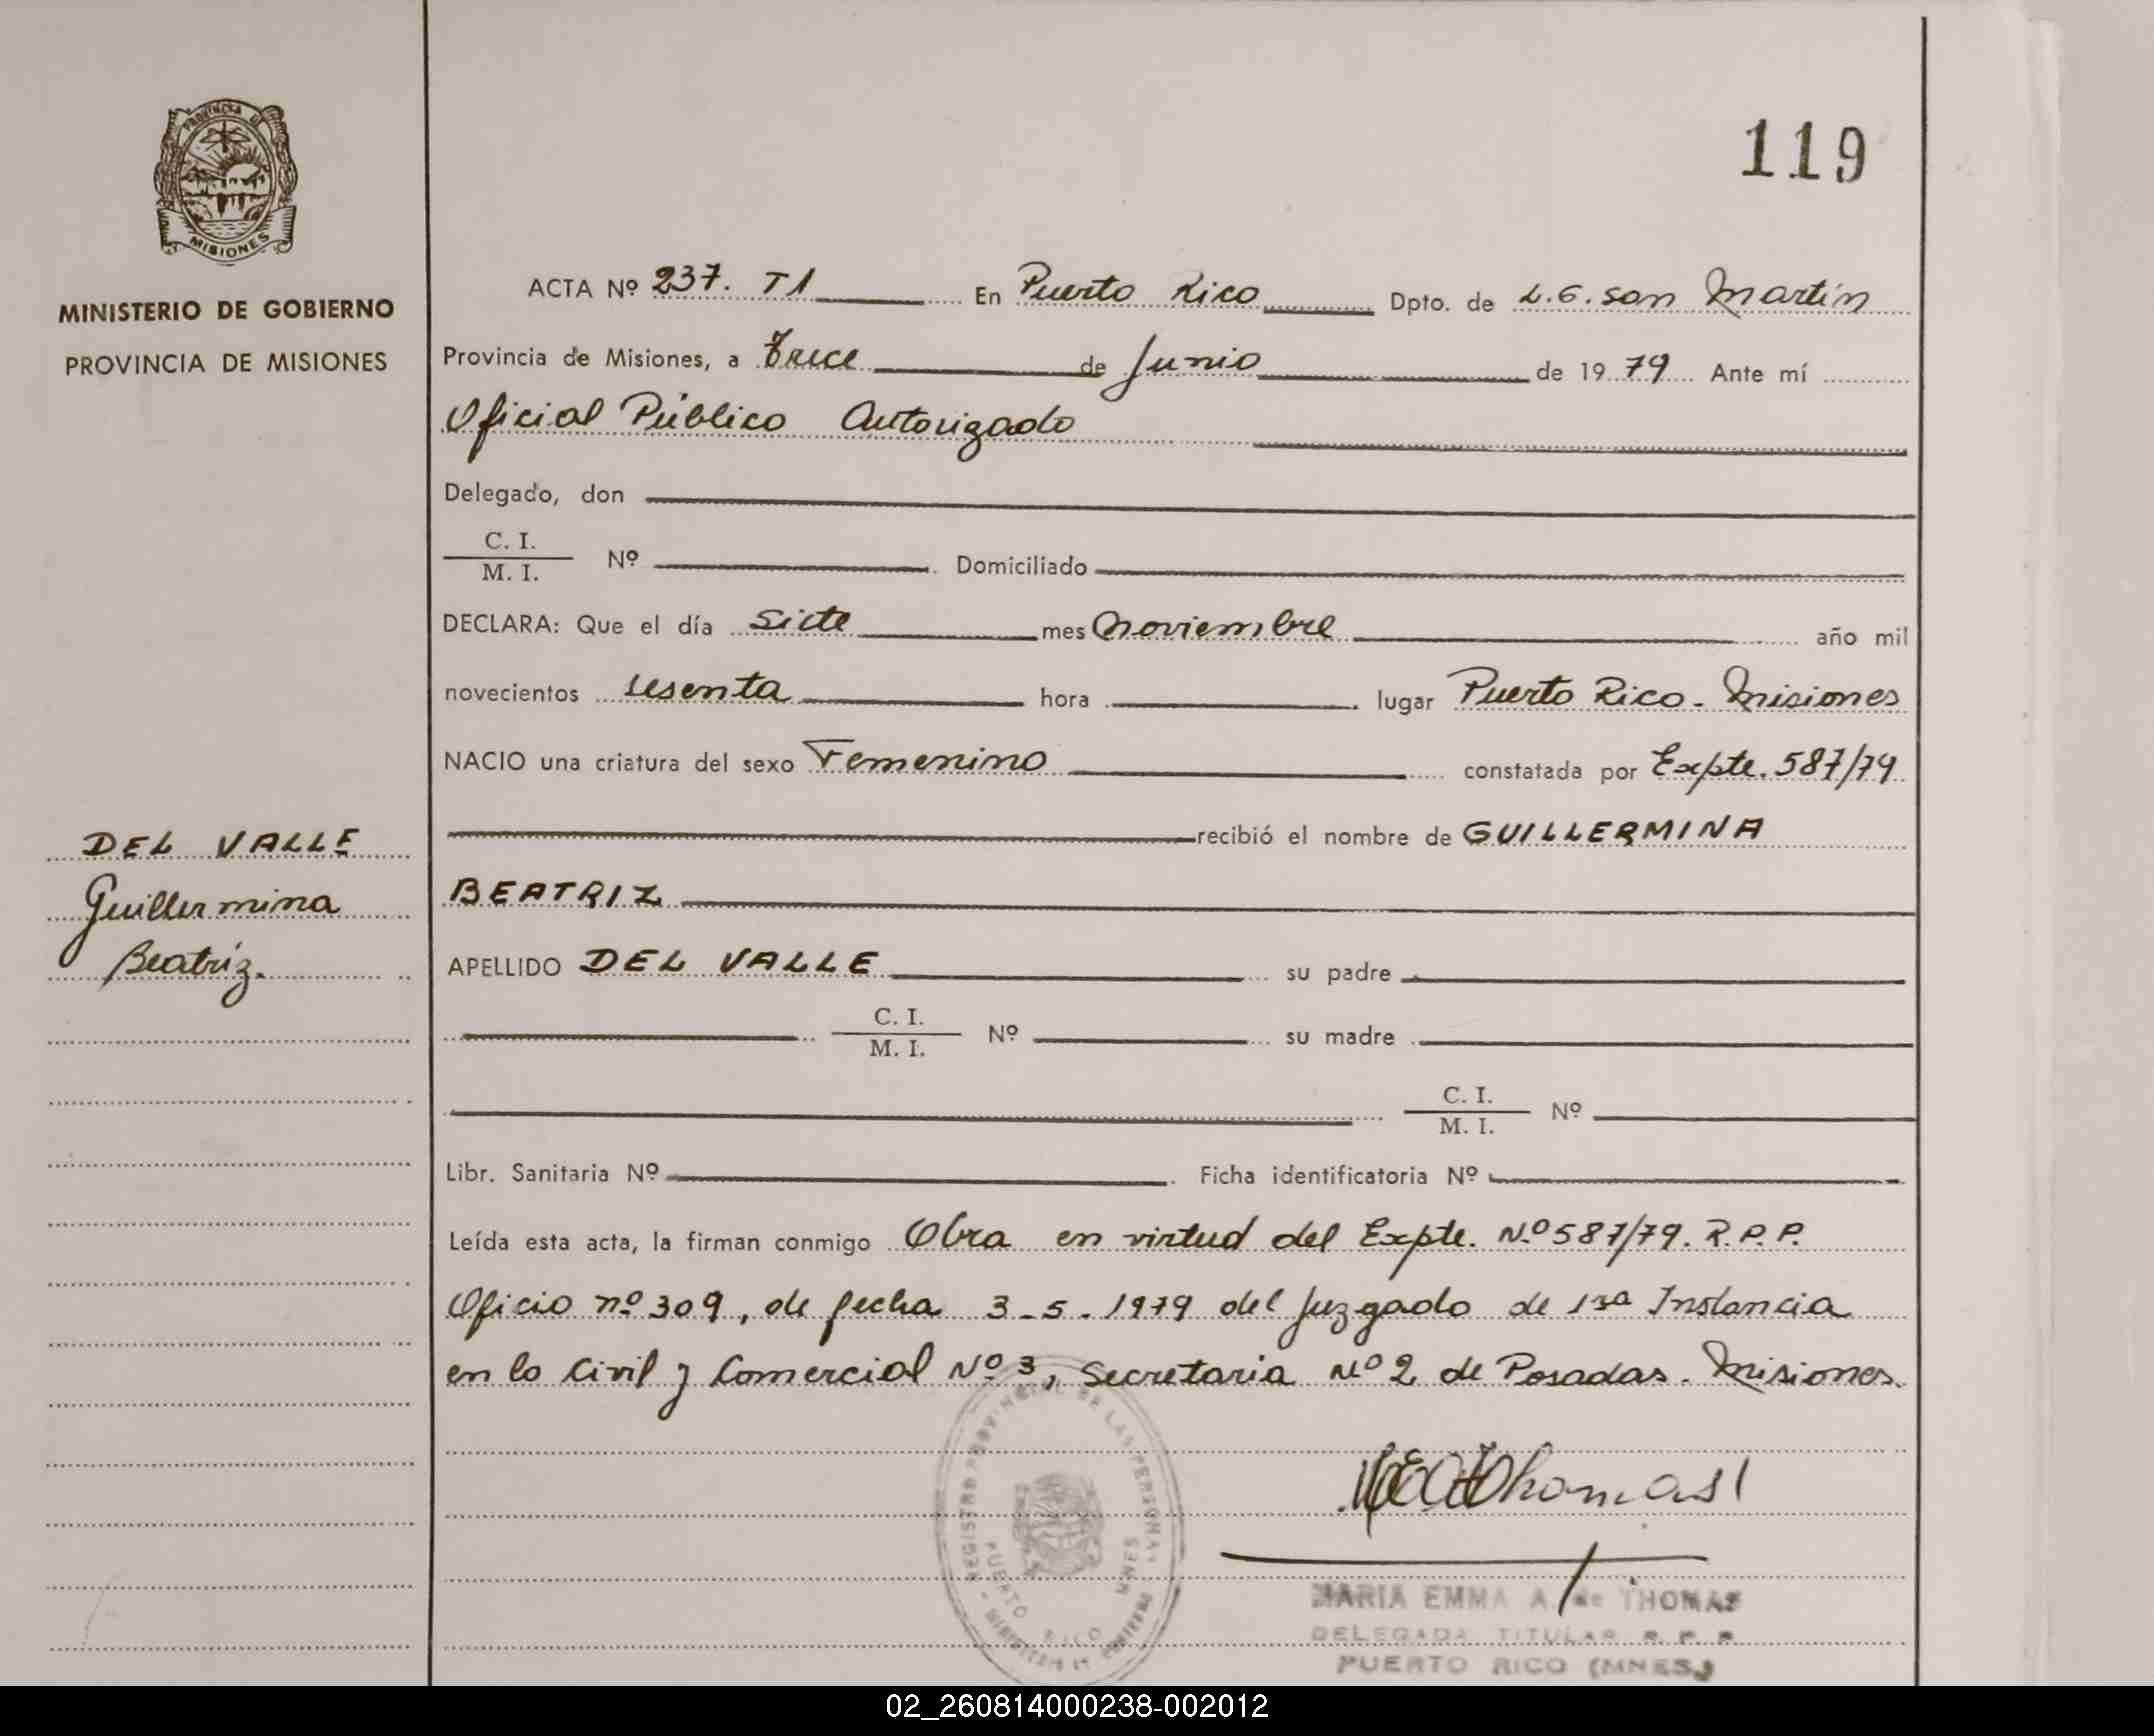 PROVINCIA DE
MISIONES
MINISTERIO DE GOBIERNO
PROVINCIA DE MISIONES
DEL VALLE
Guillermina
Beatriz.
119
ACTA Nº 237. T1 En Puerto Rico Dpto. de L.G. san Martín
Provincia de Misiones, a trece de Junio de 1979 Ante mí
Oficial Público Autorizado
Delegado, don
C. I.
M. I. Nº Domiciliado
DECLARA: Que el día siete mes noviembre año mil
novecientos sesenta hora lugar Puerto Rico - Misiones
NACIO una criatura del sexo Femenino constatada por Expte. 587/79
recibió el nombre de GUILLERMINA
BEATRIZ
APELLIDO DEL VALLE su padre
C. I.
M. I. Nº su madre
C. I.
M. I. Nº
Libr. Sanitaria Nº Ficha identificatoria Nº
Leída esta acta, la firman conmigo Obra en virtud del Expte. Nº 587/79. R.P.P.
Oficio nº 309, de fecha 3-5-1979 del Juzgado de 1ra Instancia
en lo Civil y Comercial Nº 3, Secretaria Nº 2 de Posadas. Misiones.
REGISTRO PROVINCIAL DE LAS PERSONAS
PUERTO RICO MNES
MINISTERIO DE GOBIERNO
Thomas
MARIA EMMA A. de THOMAS
DELEGADA TITULAR R. P. P.
PUERTO RICO (MNES.)
02_260814000238-002012